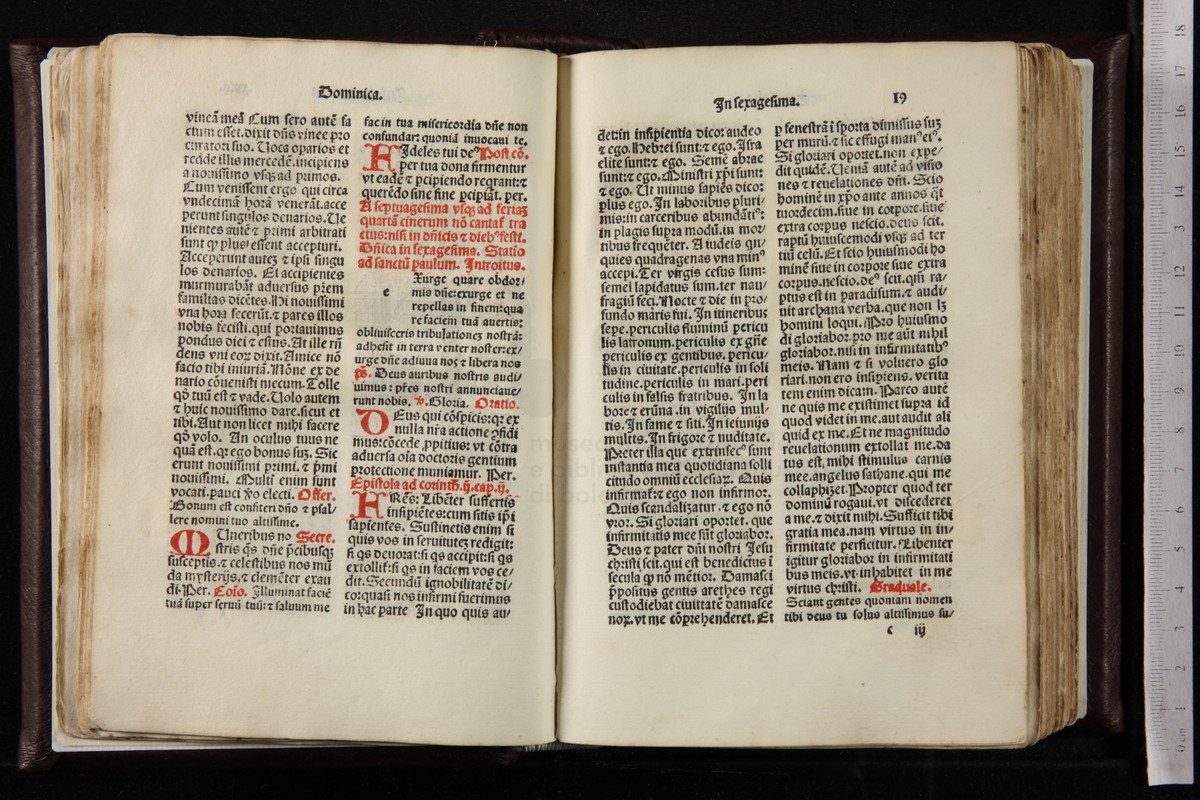 Dominica.
vineā meā Cum sero autē fa
ctum esset. dixit dñs vinee pro
curatori suo. Uoca oparios et
redde illis mercedē. incipiens
a nouissimo vsqꝫ ad primos.
Cum venissent ergo qui circa
vndecimā horā venerāt. acce
perunt singulos denarios. Ue
nientes autē ⁊ primi arbitrati
sunt ꝙ plus essent accepturi.
Acceperunt autez ⁊ ipsi singu
los denarios. Et accipientes
murmurabāt aduersus p̄rem
familias dicētes. Hi nouissimi
vna hora fecerūt ⁊ pares illos
nobis fecisti. qui portauimus
pondus diei ⁊ estus. At ille rñ
dens vni eoꝝ dixit. Amice nō
facio tibi iniuriā. Nōne ex de
nario cōuenisti mecum. Tolle
qđ tuū est ⁊ vade. Uolo autem
⁊ huic nouissimo dare. sicut et
tibi. Aut non licet mihi facere
qđ volo. An oculus tuus ne
quā est. qꝛ ego bonus suꝫ. Sic
erunt nouissimi primi. ⁊ p̄mi
nouissimi. Multi enim sunt
vocati. pauci v̄o electi. Offer.
Bonum est confiteri dño ⁊ psal/
lere nomini tuo altissime.
MUneribus no Secre.
stris qs̄ dñe p̄cibusqꝫ
susceptis. ⁊ celestibus nos mū
da mysterijs. ⁊ clemēter exau
di. Per. Coio. Illuminat faciē
tuā super seruū tuū: ⁊ saluum me
fac in tua misericordia dñe non
confundar: quoniā inuocaui te.
FIdeles tui deꝰ Post cō.
per tua dona firmentur
vt eadē ⁊ ꝑcipiendo reqrant: ⁊
querēdo sine fine ꝑcipiāt. per.
A septuagesima vsqꝫ ad feriaꝫ
quartā cinerum nō cantaf tra
ctus: nisi in dñicis ⁊ diebꝰ festi.
Dñica in sexagesima. Statio
ad sanctū paulum. Introitus.
eXurge quare obdor/
mis dñe: exurge et ne
repellas in finem: qua
re faciem tuā auertis:
obliuisceris tribulationeꝫ nostrā:
adhesit in terra venter noster: ex/
urge dñe adiuua nos ⁊ libera nos
ps̄. Deus auribus nostris audi/
uimus: p̄res nostri annunciaue/
runt nobis. ℣. Gloria. Oratio.
DEus qui cōspicis: qꝛ ex
nulla nr̄a actione ꝯfidi
mus: cōcede ꝓpitius: vt cōtra
aduersa oīa doctoris gentium
protectione muniamur. Per.
Epistola ad corinth. ij. cap. ij.
FRēs: Libēter suffertis
insipiētes: cum sitis ip̄i
sapientes. Sustinetis enim si
quis vos in seruitutez redigit:
si qs deuorat: si qs accipit: si qs
extollit: si qs in faciem vos ce/
dit. Secundū ignobilitatē di/
co: quasi nos infirmi fuerimus
in hac parte In quo quis au/
In sexagesima.
19
det: in insipientia dico: audeo
⁊ ego. Hebrei sunt: ⁊ ego. Isra
elite sunt: ⁊ ego. Semē abrae
sunt: ⁊ ego. Ministri xp̄i sunt:
⁊ ego. Ut minus sapiēs dico:
plus ego. In laboribus pluri/
mis: in carceribus abundātiꝰ:
in plagis supra modū. in mor/
tibus frequēter. A iudeis qn/
quies quadragenas vna minꝰ
accepi. Ter virgis cesus sum:
semel lapidatus sum. ter nau/
fragiū feci. Nocte ⁊ die in pro/
fundo maris fui. In itineribus
sepe. periculis fluminū pericu
lis latronum. periculis ex gñe
periculis ex gentibus. pericu/
lis in ciuitate. periculis in soli
tudine. periculis in mari. peri
culis in falsis fratribus. In la
bore ⁊ erūna. in vigilijs mul/
tis. In fame ⁊ siti. In ieiunijs
multis. In frigore ⁊ nuditate.
Preter illa que extrinsecꝰ sunt
instantia mea quotidiana solli
citudo omniū ecclesiaꝝ. Quis
infirmaf: ⁊ ego non infirmor.
Quis scandalizatur. ⁊ ego nō
vror. Si gloriari oportet. que
infirmitatis mee sūt gloriabor.
Deus ⁊ pater dñi nostri Jesu
christi scit. qui est benedictus ī
secula ꝙ nō mētior. Damasci
p̄positus gentis arethes regi
custodiebat ciuitatē damasce
noꝝ. vt me cōprehenderet. Et
p fenestrā ī sporta dimissus suꝫ
per murū. ⁊ sic effugi manꝰ eiꝰ.
Si gloriari oportet. non expe/
dit quidē. Ueniā autē ad visio
nes ⁊ reuelationes dñi. Scio
hominē in xp̄o ante annos qt̄
tuordecim. siue in corpore. siue
extra corpus nescio. deus scit.
raptū huiuscemodi vsqꝫ ad ter
tiū celū. Et scio huiusmodi ho
minē siue in corpore siue extra
corpus. nescio. deꝰ scit. qm̄ ra/
ptus est in paradisum. ⁊ audi/
uit archana verba. que non lꝫ
homini loqui. Pro huiusmo
di gloriabor. pro me aūt nihil
gloriabor. nisi in infirmitatibꝰ
meis. Nam ⁊ si voluero glo
riari. non ero insipiens. verita
tem enim dicam. Parco autē
ne quis me existimet supra id
quod videt in me. aut audit ali
quid ex me. Et ne magnitudo
reuelationum extollat me. da
tus est mihi stimulus carnis
mee. angelus sathane. qui me
collaphizet. Propter quod ter
dominū rogaui. vt discederet
a me. ⁊ dixit mihi. Sufficit tibi
gratia mea. nam virtus in in/
firmitate perficitur. Libenter
igitur gloriabor in infirmitati
bus meis. vt. inhabitet in me
virtus christi. Graduale.
Sciant gentes quoniam nomen
tibi deus tu solus altissimus su/
c iij